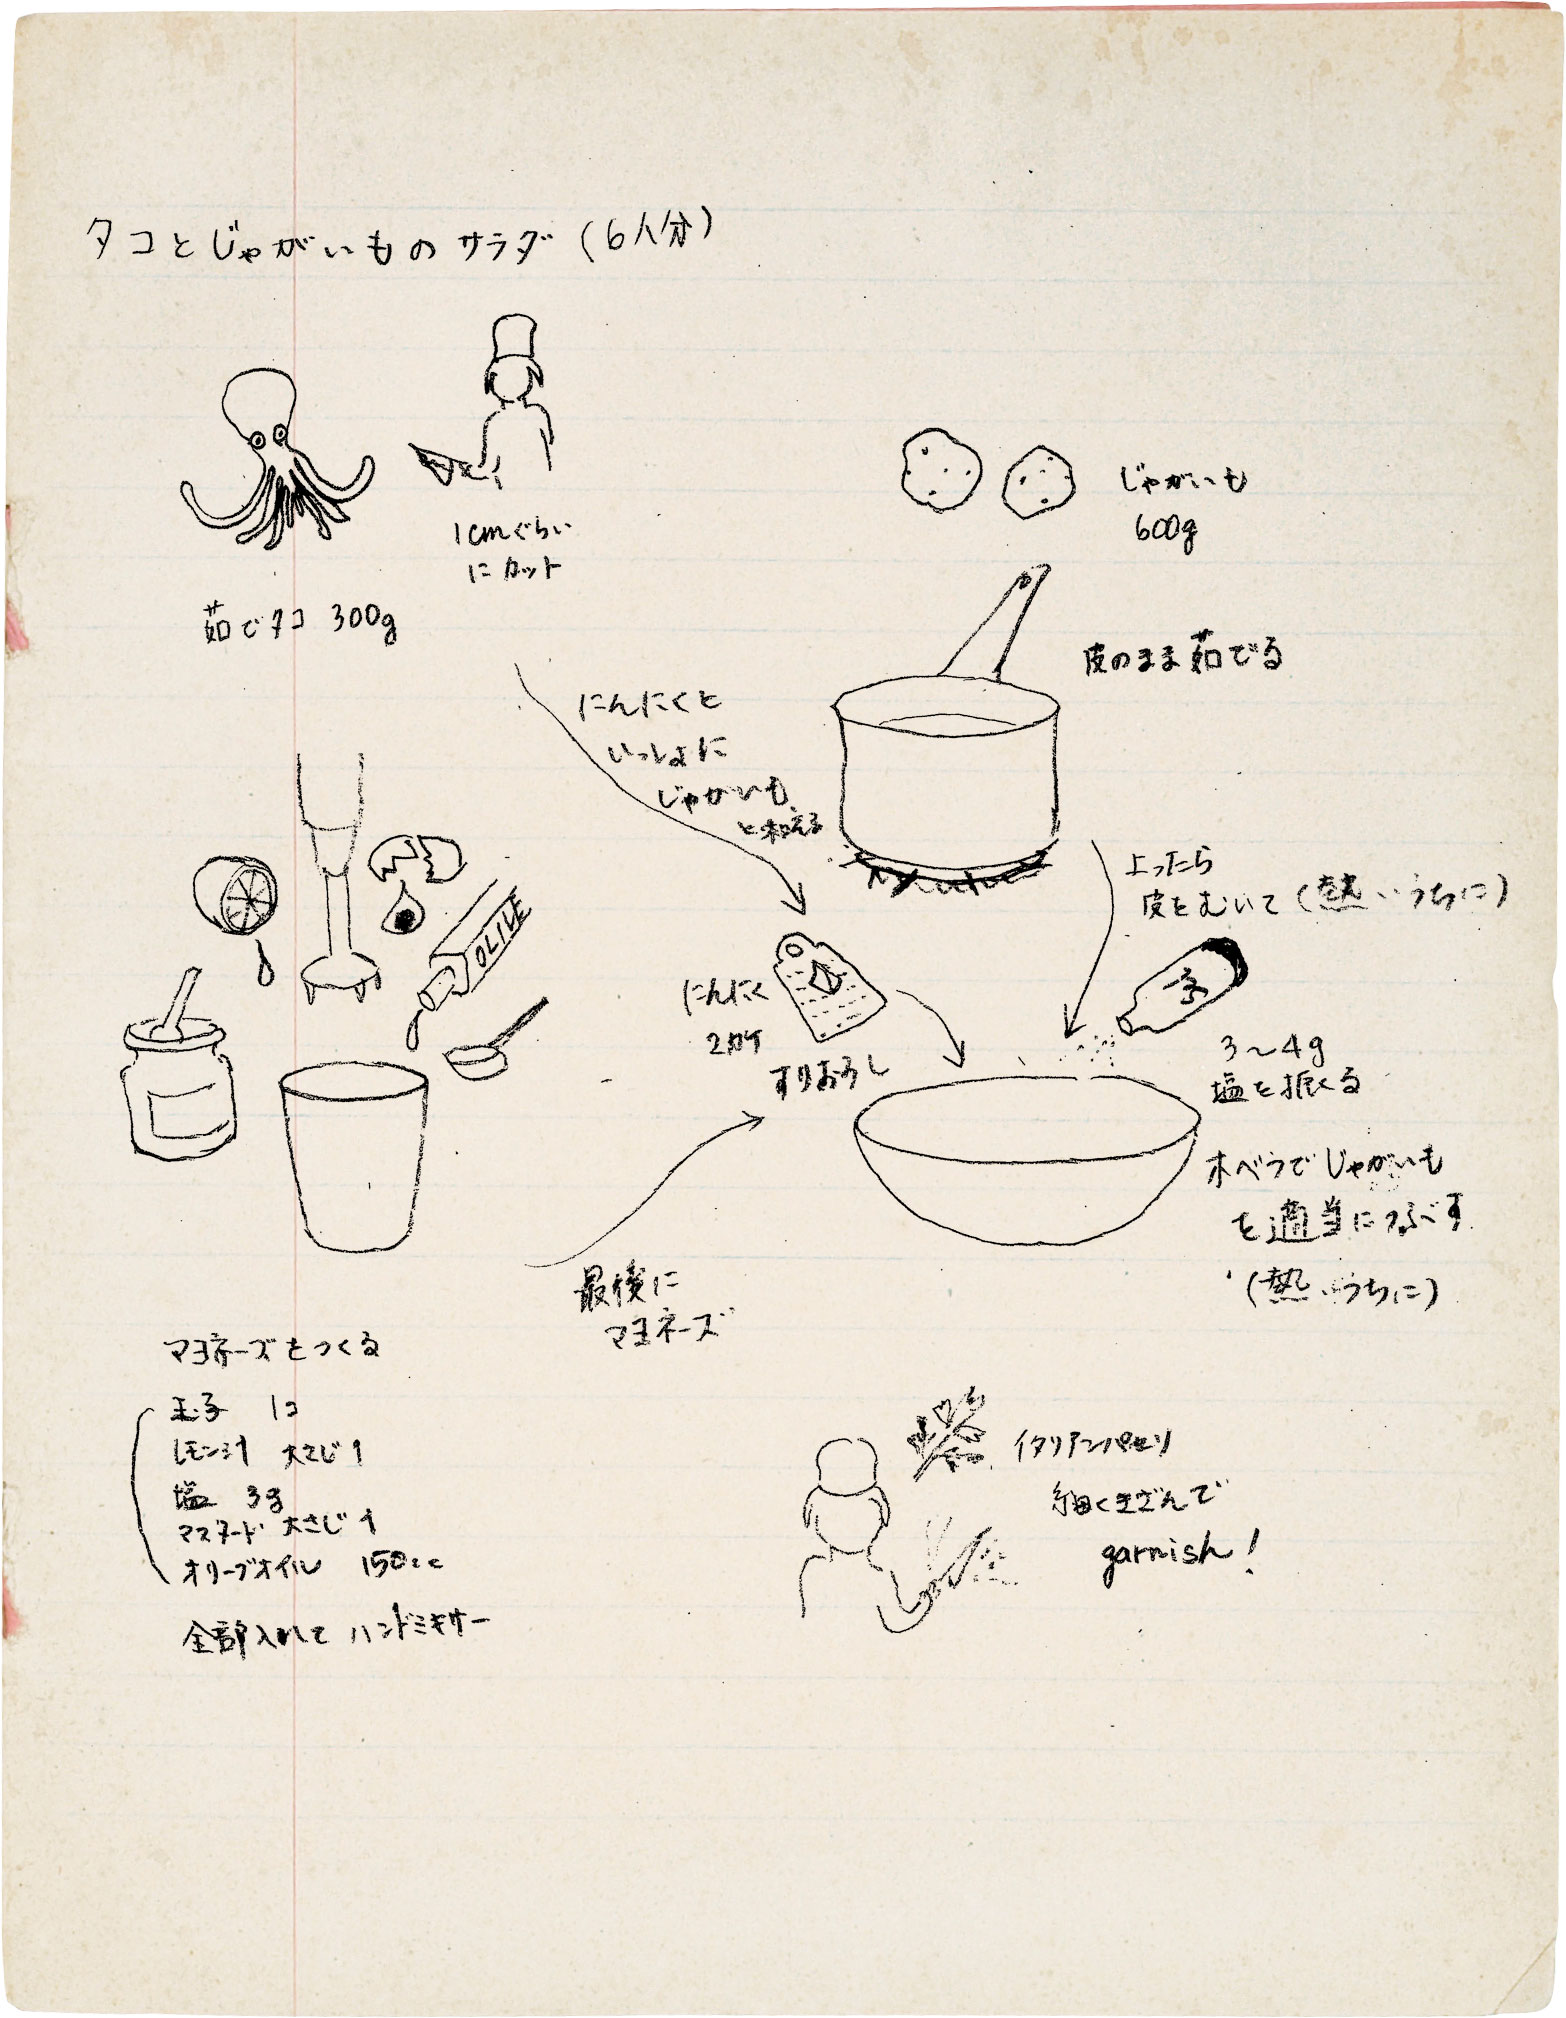 タコとじゃがいものサラダ（6人分）
1cmぐらい
にカット
茹でタコ 300g
じゃがいも
600g
皮のまま茹でる
にんにくと
いっしょに
じゃがいも
と和える
上ったら
皮をむいて（熱いうちに）
OLIVE
にんにく
2カケ
すりおろし
3〜4g
塩を振る
木ベラでじゃがいも
を適当につぶす
（熱いうちに）
最後に
マヨネーズ
マヨネーズをつくる
玉子 1コ
レモン汁 大さじ1
塩 3g
マスタード 大さじ1
オリーブオイル 150cc
全部入れて ハンドミキサー
イタリアンパセリ
細くきざんで
garnish!